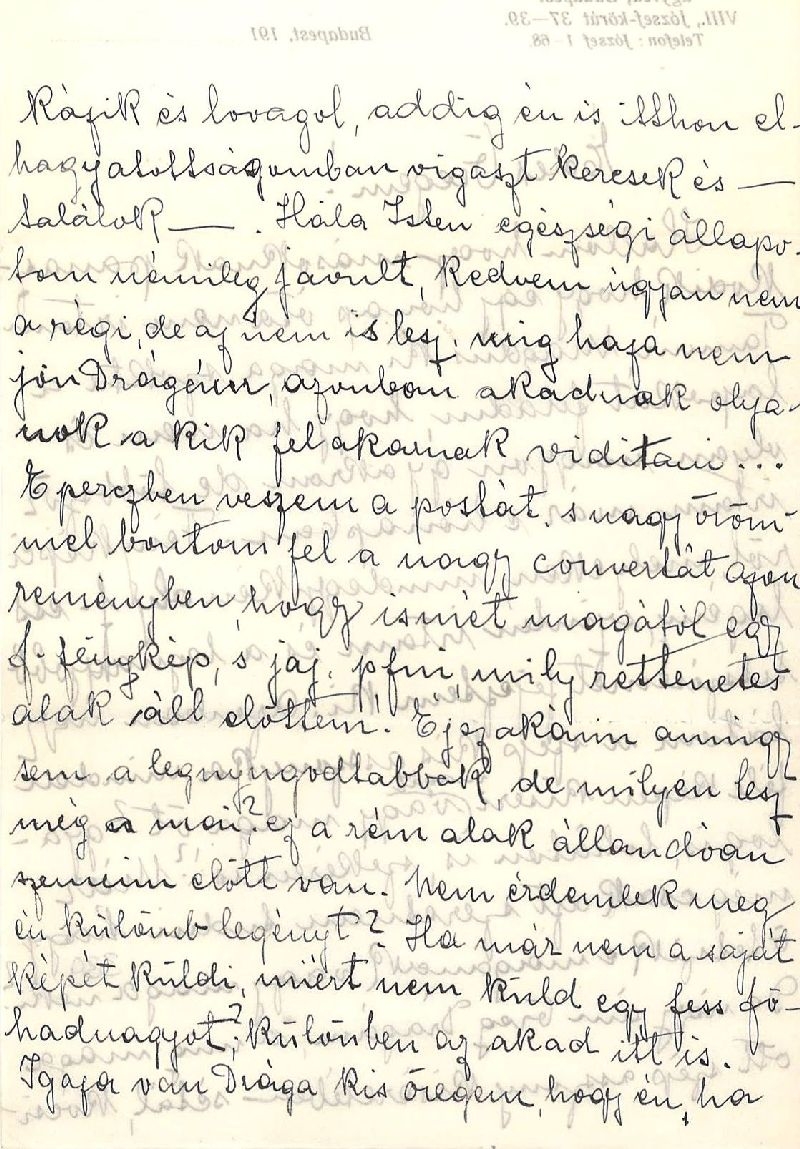 VIII., József-körút 37–39.
Telefon: József 1–68.
Budapest, 191
kázik és lovagol, addig én is itthon el-
hagyatottságomban vigaszt keresek és —
találok — . Hála Isten egészségi állapo-
tom némileg javult, kedvem ugyan nem
a régi, de az nem is lesz, míg haza nem
jön Drágám, azonban akadnak olya-
nok a kik fel akarnak vidítani ...
E perczben veszem a postát, s nagy öröm-
mel bontom fel a nagy convertát azon
reményben, hogy ismét magától egy
f. fénykép, s jaj, pfui, mily rettenetes
alak áll előttem! Éjszakáim amúgy
sem a legnyugodtabbak, de milyen lesz
még a mai? ez a rém alak állandóan
szemeim előtt van. Nem érdemlek meg
én külömb legényt? Ha már nem a saját
képét küldi, miért nem küld egy fess fő-
hadnagyot?, különben az akad itt is.
Igaza van Drága kis öregem, hogy én, ha